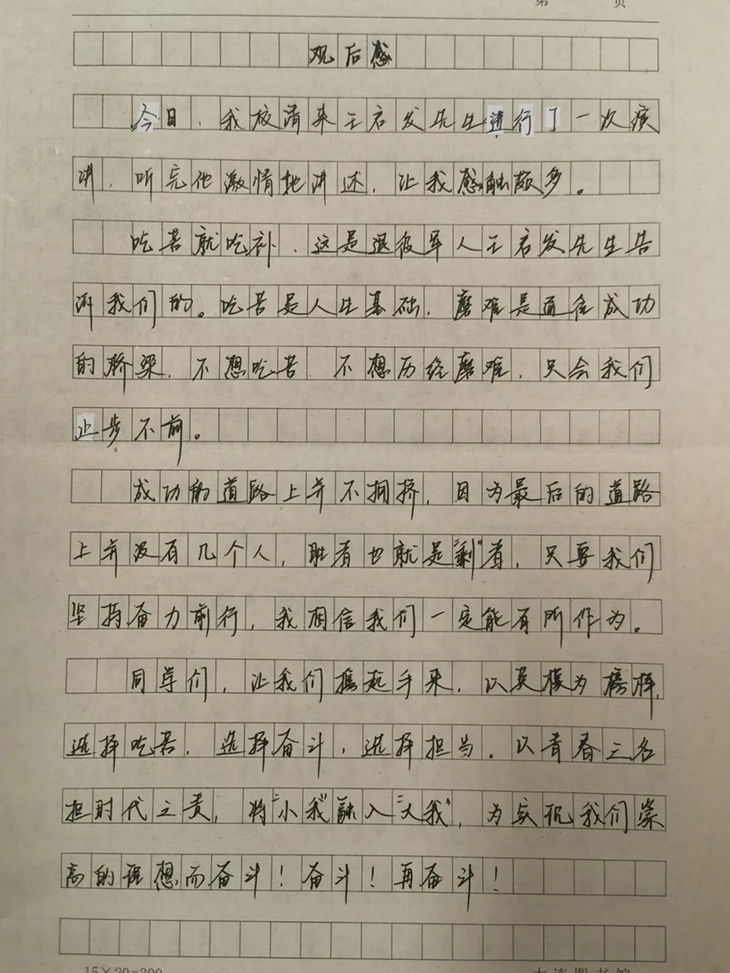 第 页
观后感
今日，我校请来王启发先生进行了一次演
讲，听完他激情地讲述，让我感触颇多。
吃苦就吃补，这是退役军人王启发先生告
诉我们的。吃苦是人生基础，磨难是通往成功
的桥梁，不想吃苦 不想历经磨难，只会我们
止步不前。
成功的道路上并不拥挤，因为最后的道路
上并没有几个人，胜者也就是“剩”者，只要我们
坚持奋力前行，我相信我们一定能有所作为。
同学们，让我们携起手来，以英模为榜样，
选择吃苦，选择奋斗，选择担当。以青春之名
担时代之责，将“小我”融入“大我”，为实现我们崇
高的理想而奋斗！奋斗！再奋斗！
15×20=300